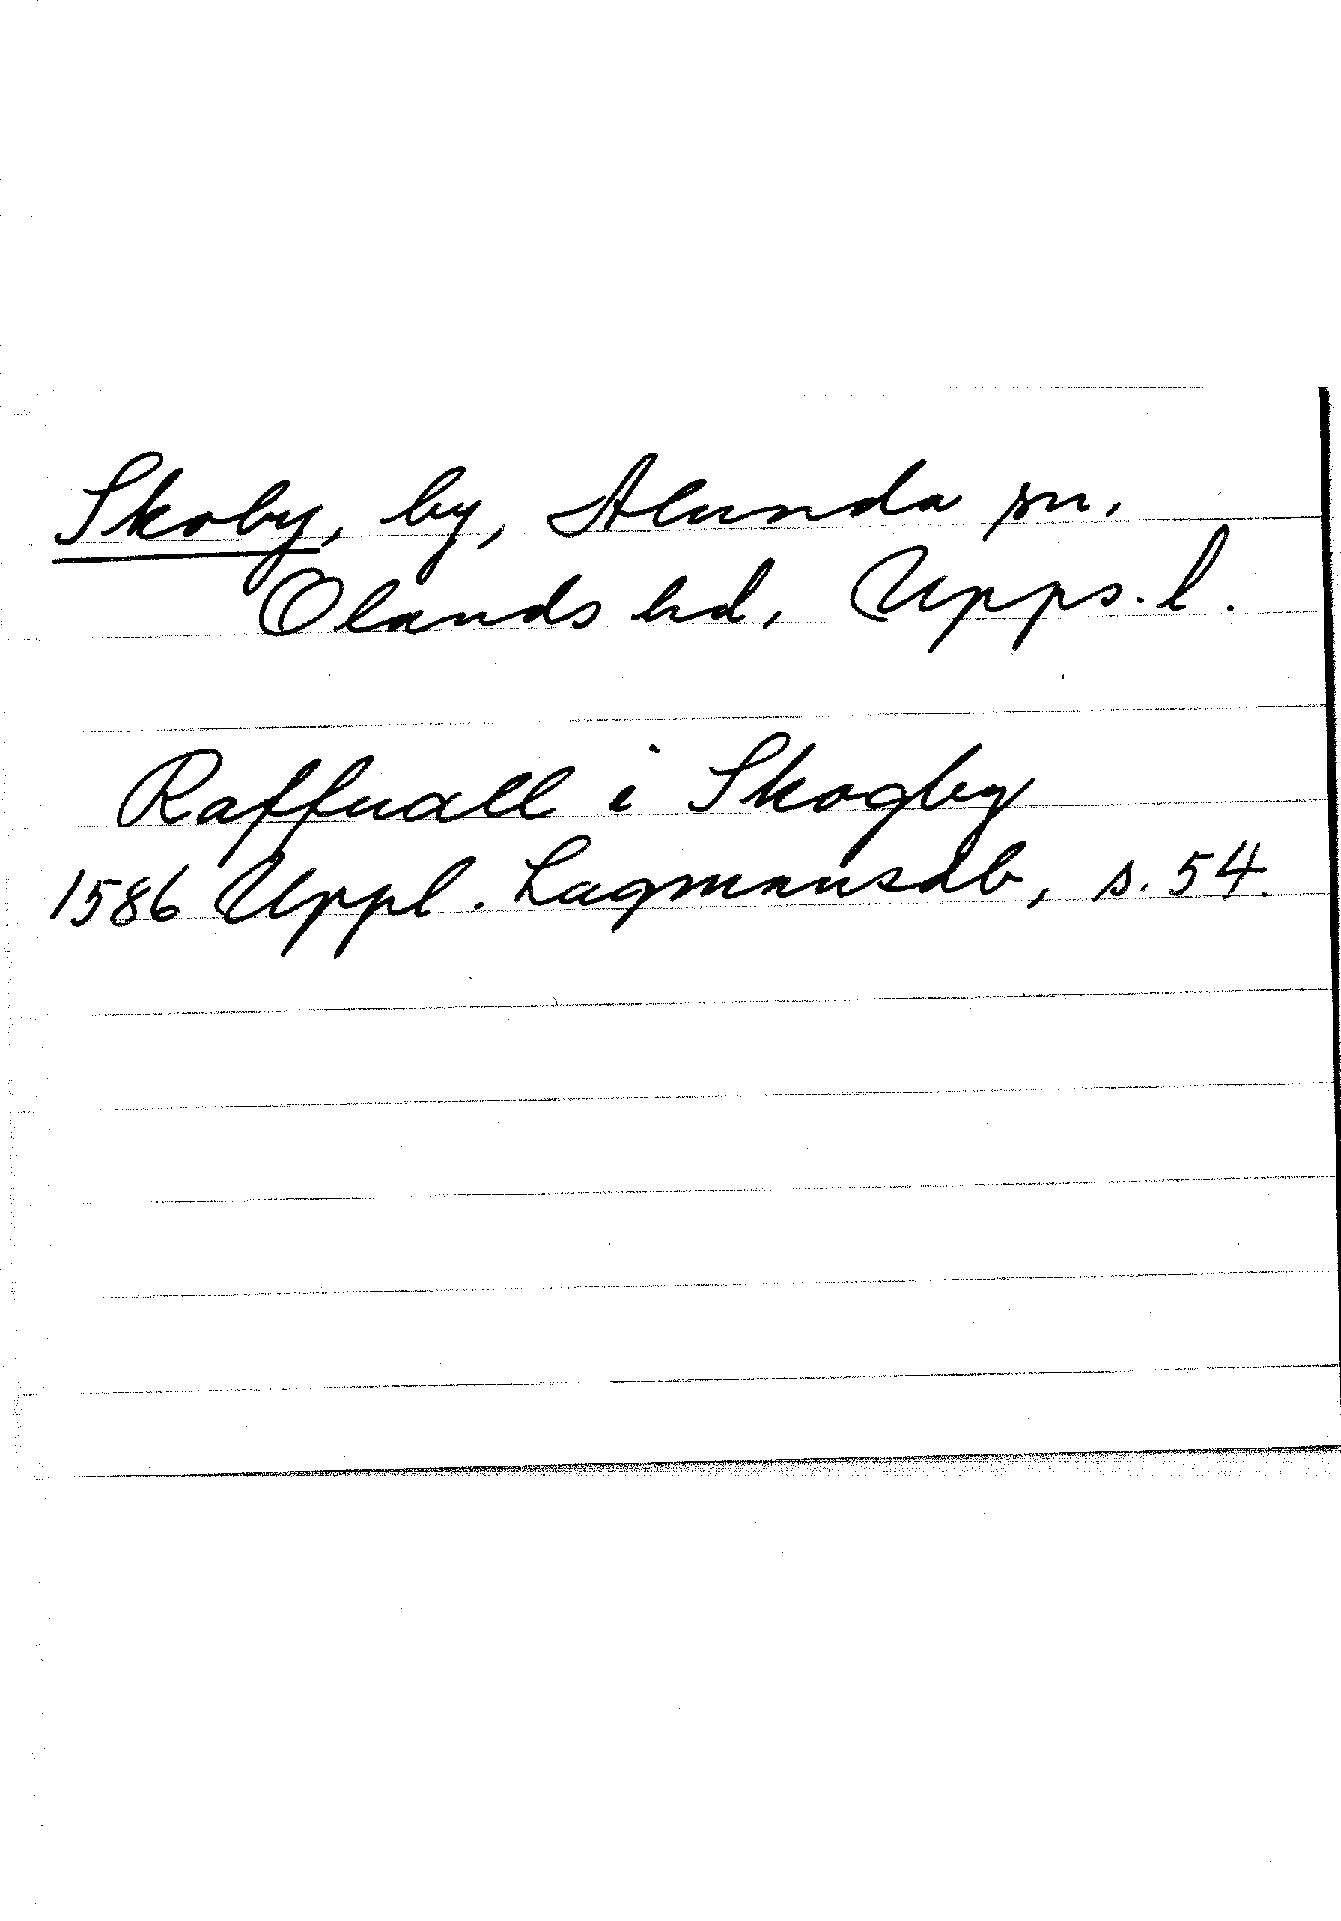 Skoby, by, Alunda sn.
Olands hd, Upps. l.
Raffuall i Skogby
1586 Uppl. Lagmansdb, s. 54.